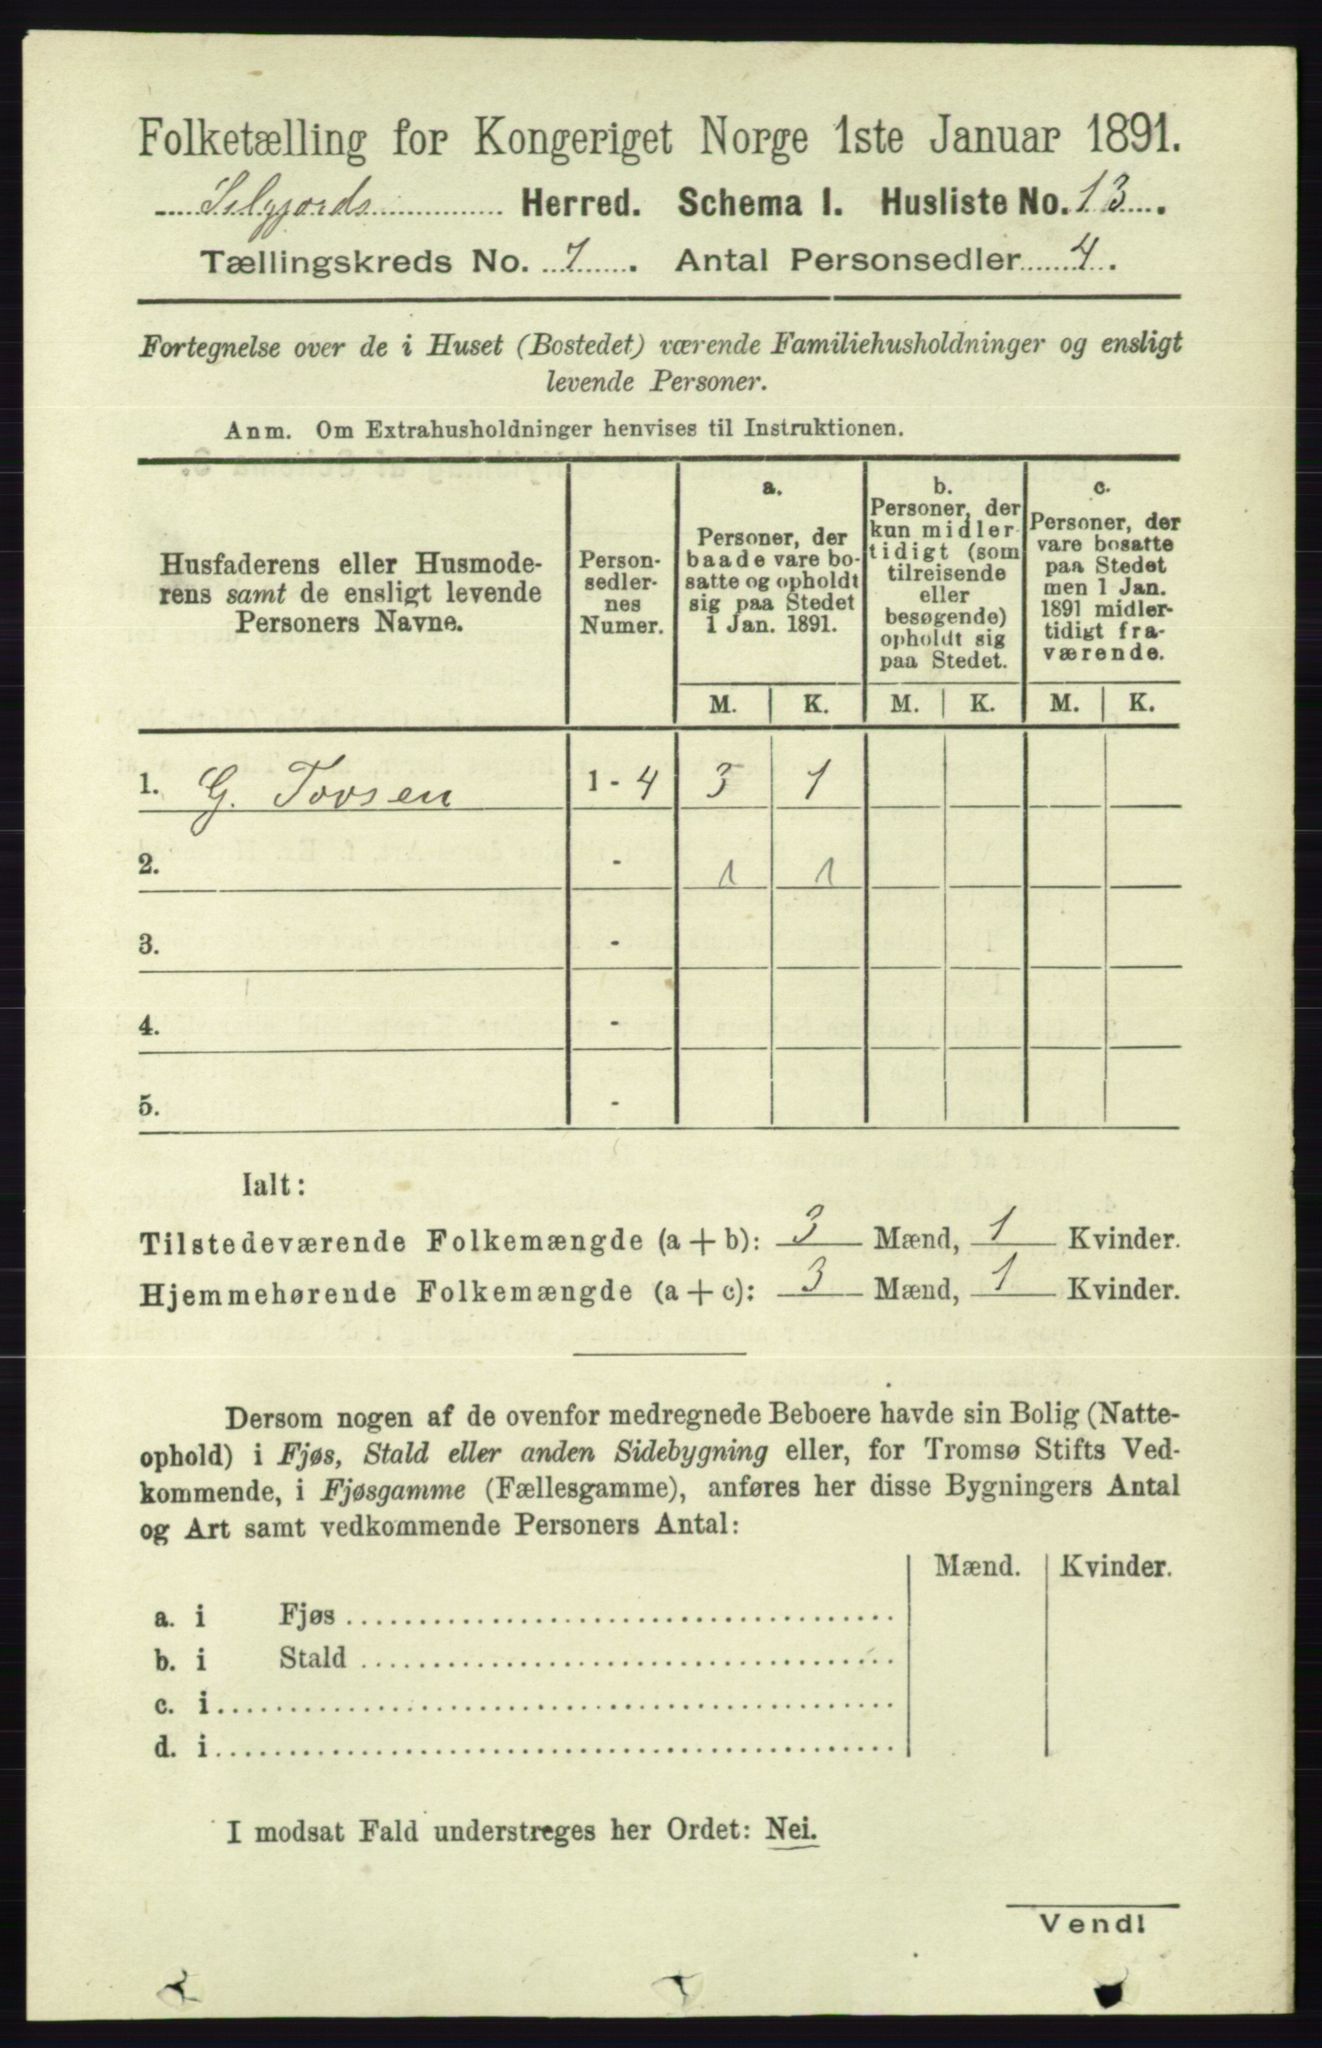 Folketælling for Kongeriget Norge 1ste Januar 1891.
Seljords Herred. Schema I. Husliste No. 13.
Tællingskreds No. 7. Antal Personsedler 4.
Fortegnelse over de i Huset (Bostedet) værende Familiehusholdninger og ensligt
levende Personer.
Anm. Om Extrahusholdninger henvises til Instruktionen.
Husfaderens eller Husmode-
rens samt de ensligt levende
Personers Navne.
Person-
sedler-
nes
Numer.
a.
Personer, der
baade vare bo-
satte og opholdt
sig paa Stedet
1 Jan. 1891.
b.
Personer, der
kun midler-
tidigt (som
tilreisende
eller
besøgende)
opholdt sig
paa Stedet.
c.
Personer, der
vare bosatte
paa Stedet
men 1 Jan.
1891 midler-
tidigt fra-
værende.
M. K. M. K. M. K.
1. G. Tovsen 1 - 4 3 1
2. - 1 1
3. -
4. -
5. -
Ialt:
Tilstedeværende Folkemængde (a + b): 3 Mænd, 1 Kvinder.
Hjemmehørende Folkemængde (a + c): 3 Mænd, 1 Kvinder.
Dersom nogen af de ovenfor medregnede Beboere havde sin Bolig (Natte-
ophold) i Fjøs, Stald eller anden Sidebygning eller, for Tromsø Stifts Ved-
kommende, i Fjøsgamme (Fællesgamme), anføres her disse Bygningers Antal
og Art samt vedkommende Personers Antal:
Mænd. Kvinder.
a. i Fjøs
b. i Stald
c. i
d. i
I modsat Fald understreges her Ordet: Nei.
Vend!